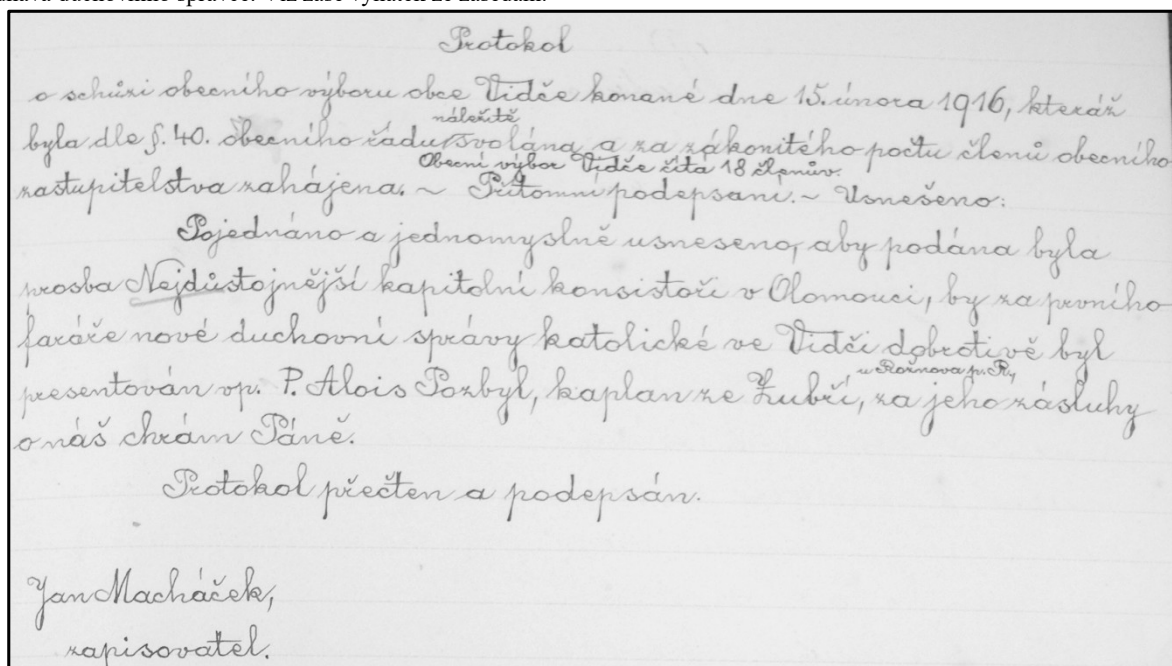 duchovního správce. Viz zase výňatek ze zasedání:
Protokol
o schůzi obecního výboru obce Vidče konané dne 15. února 1916, kteráž
byla dle §. 40. obecního řádu náležitě svolána a za zákonitého počtu členů obecního
zastupitelstva zahájena. ~ Obecní výbor Vidče čítá 18 členův. Přítomní podepsaní. ~ Usnešeno:
Pojednáno a jednomyslně usneseno, aby podána byla
prosba Nejdůstojnější kapitolní konsistoři v Olomouci, by za prvního
faráře nové duchovní správy katolické ve Vidči dobrotivě byl
presentován vp. P. Alois Pozbyl, kaplan ze Zubří, u Rožnova p. R., za jeho zásluhy
o náš chrám Páně.
Protokol přečten a podepsán.
Jan Macháček,
zapisovatel.